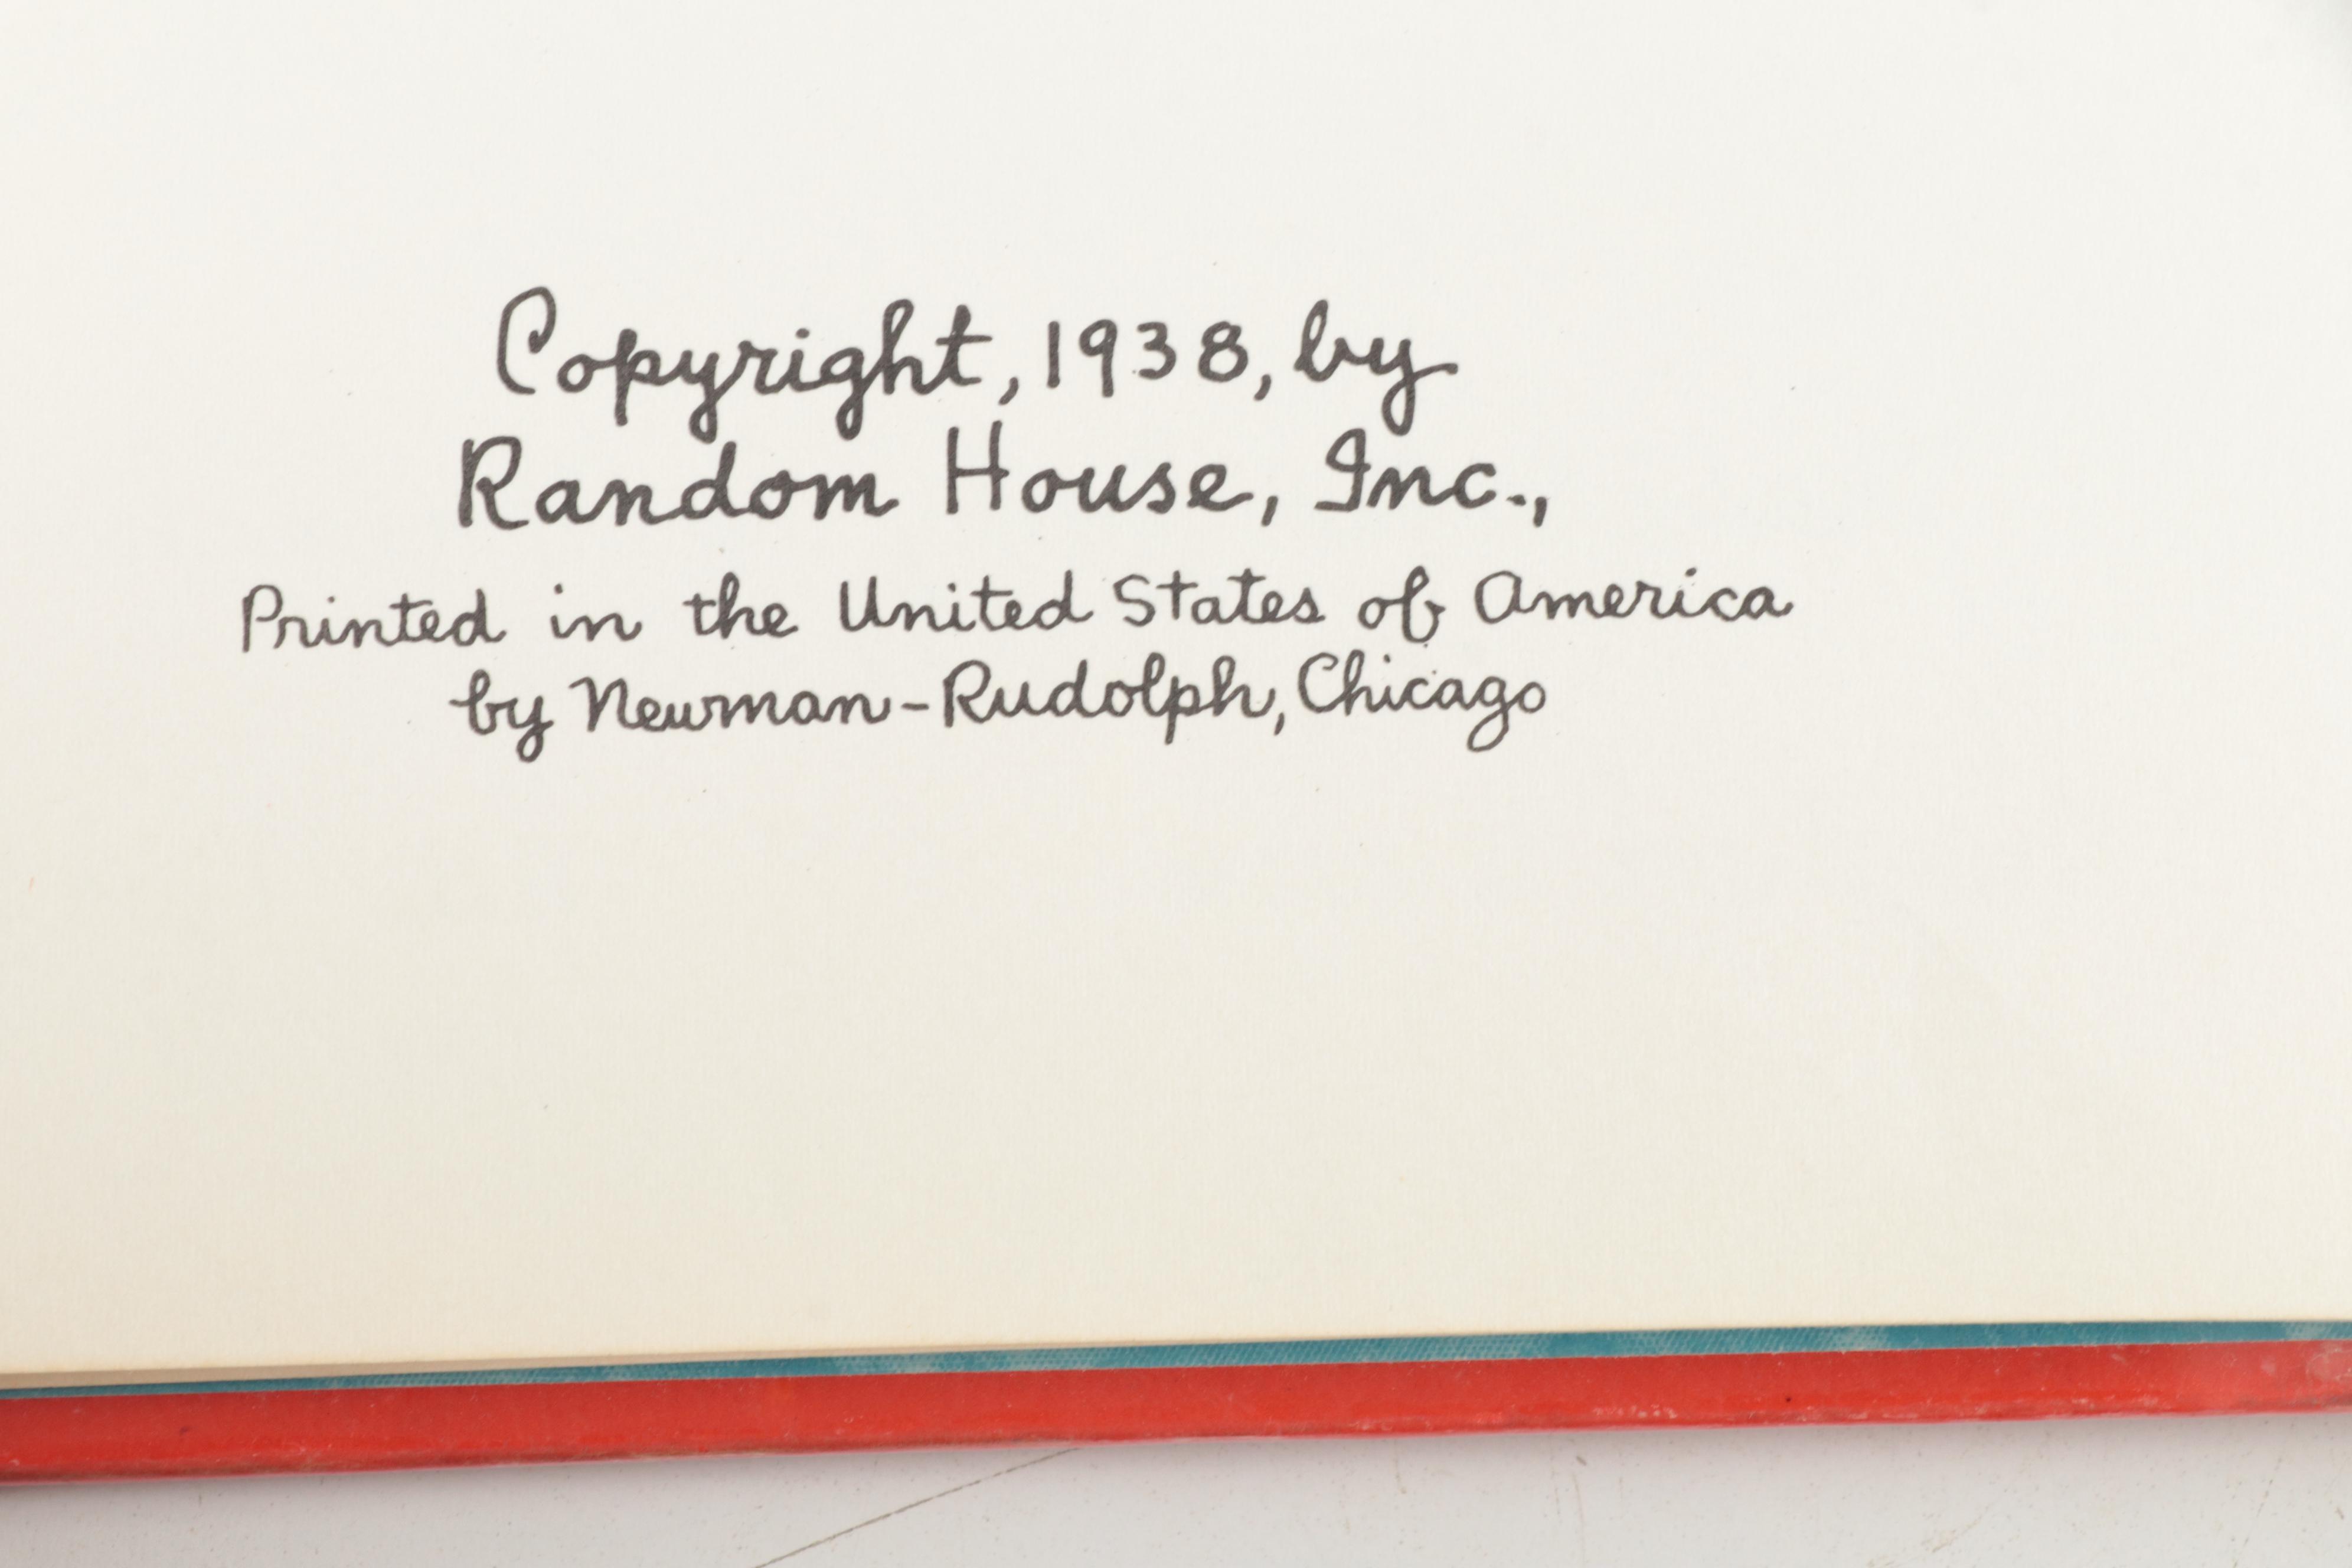 Copyright, 1938, by
Random House, Inc.,
Printed in the United States of America
by Newman-Rudolph, Chicago